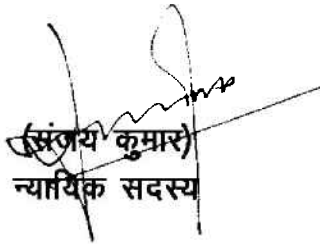 (संजय कुमार)
न्यायिक सदस्य